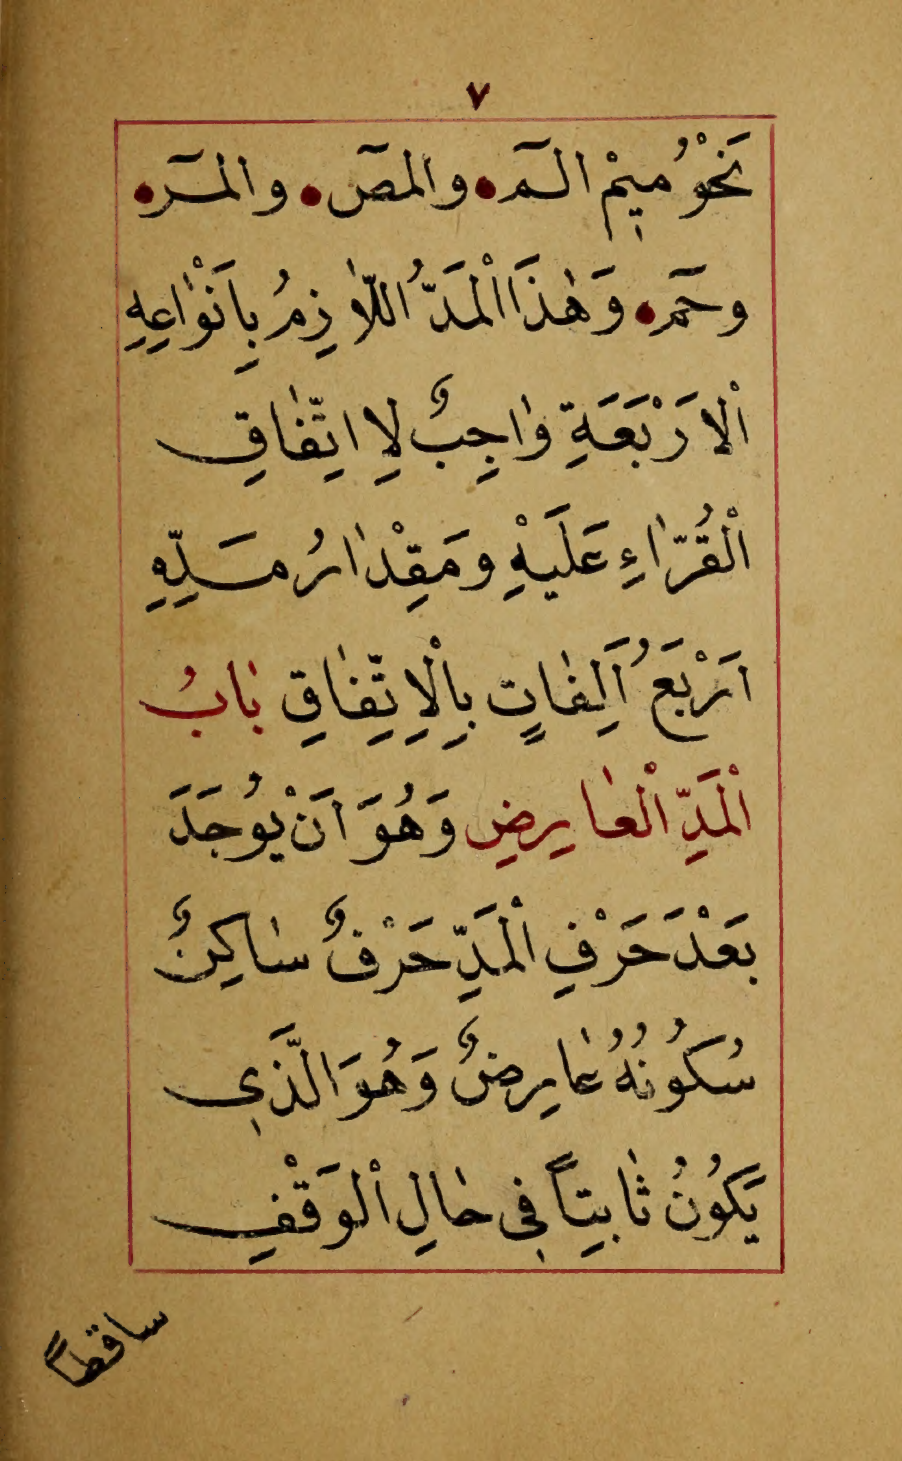 ٧
نَحْوُ مٖيمْ الٓمٓ والٓمٓصٓ والٓمٓرٰ
وحٰمٓ وَهٰذَا الْمَدُّ اللّاٰزِمُ بِاَنْوٰاعِهِ
الْاَرْبَعَةِ وٰاجِبٌ لِاتِّفٰاقِ
الْقُرّٰاءِ عَلَيْهِ ومَقِدْٰارُ مَدِّهِ
اَرْبَعُ اَلِفٰاتٍ بِالْاِتِّفٰاقِ بٰابُ
الْمَدِّ الْعٰارِضِ وَهُوَ اَنْ يُوجَدَ
بَعْدَ حَرْفِ الْمَدِّ حَرْفٌ سٰاكِنٌ
سُكَوُنُهُ عٰارِضٌ وَهُوَ الَّذٖى
يَكَوُنُ ثٰابِتِاً فٖى حٰالِ الْوَقْفِ
ساقطاً